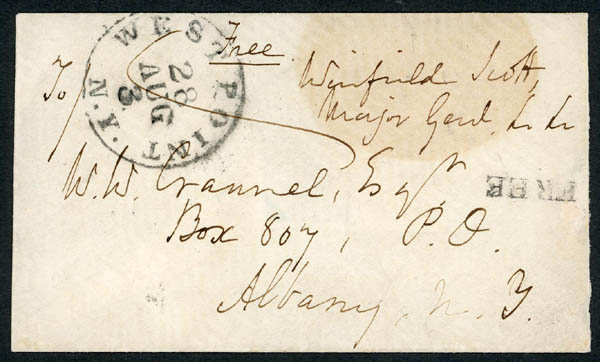 WEST POINT N.Y.
28
AUG
3
Free
Winfield Scott,
Major Genl.
To
W. W. Crannel, Esqr.
FREE
Box 807, P.O.
Albany, N. Y.